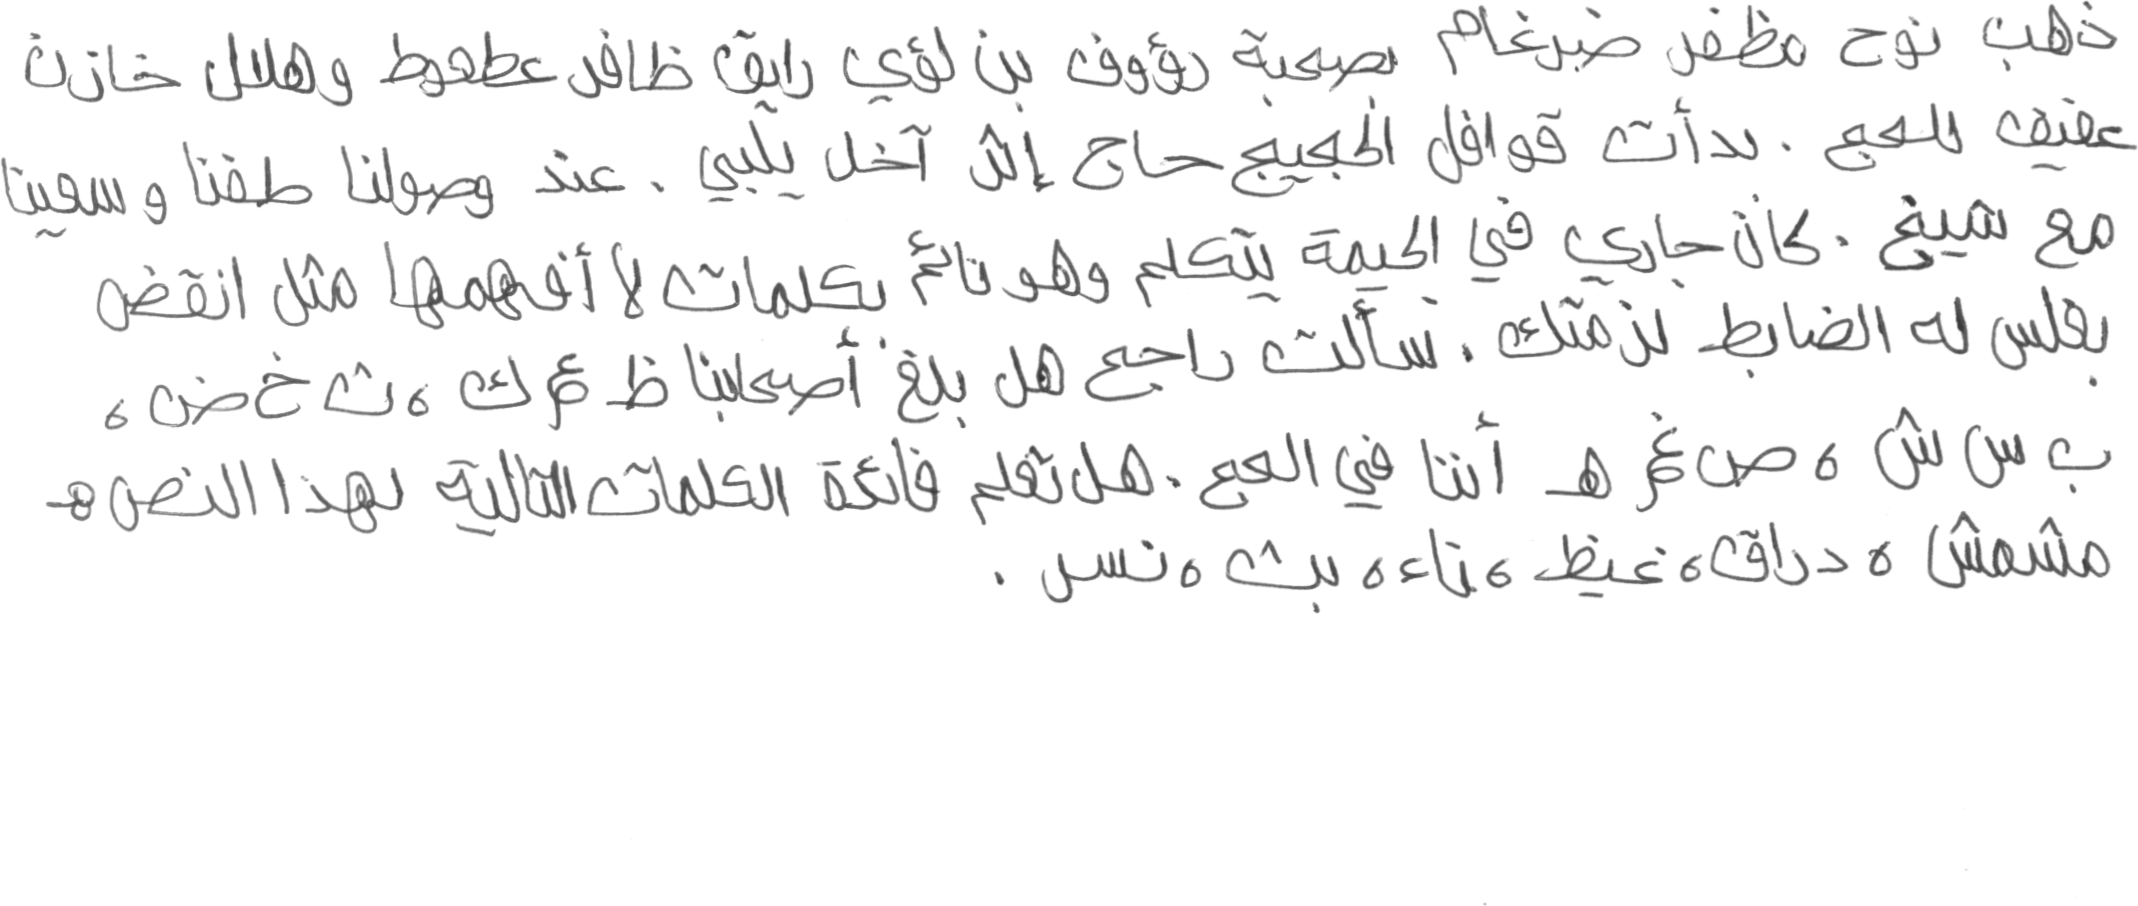 ذهب نوح مظفر ضرغام بصحبة رؤوف بن لؤي رايق ظافر عطعوط وهلال خازن
عفيف للحج . بدأت قوافل الحجيج حاج إثر آخر يلبي . عند وصولنا طفنا وسعينا
مع شيخ . كان جاري في الخيمة يتكلم وهو نائم بكلمات لا أفهمها مثل انقض
بفلس له الضابط لزمتك . سألت راجح هل بلغ أصحابنا ظ ع ك ، ث خ ض ،
ب س ش ، ص غ هـ أننا في الحج . هل تعلم فائدة الكلمات التالية لهذا النص هـ
مشمش ، دراق ، غيظ ، ناء ، بث ، نسر .